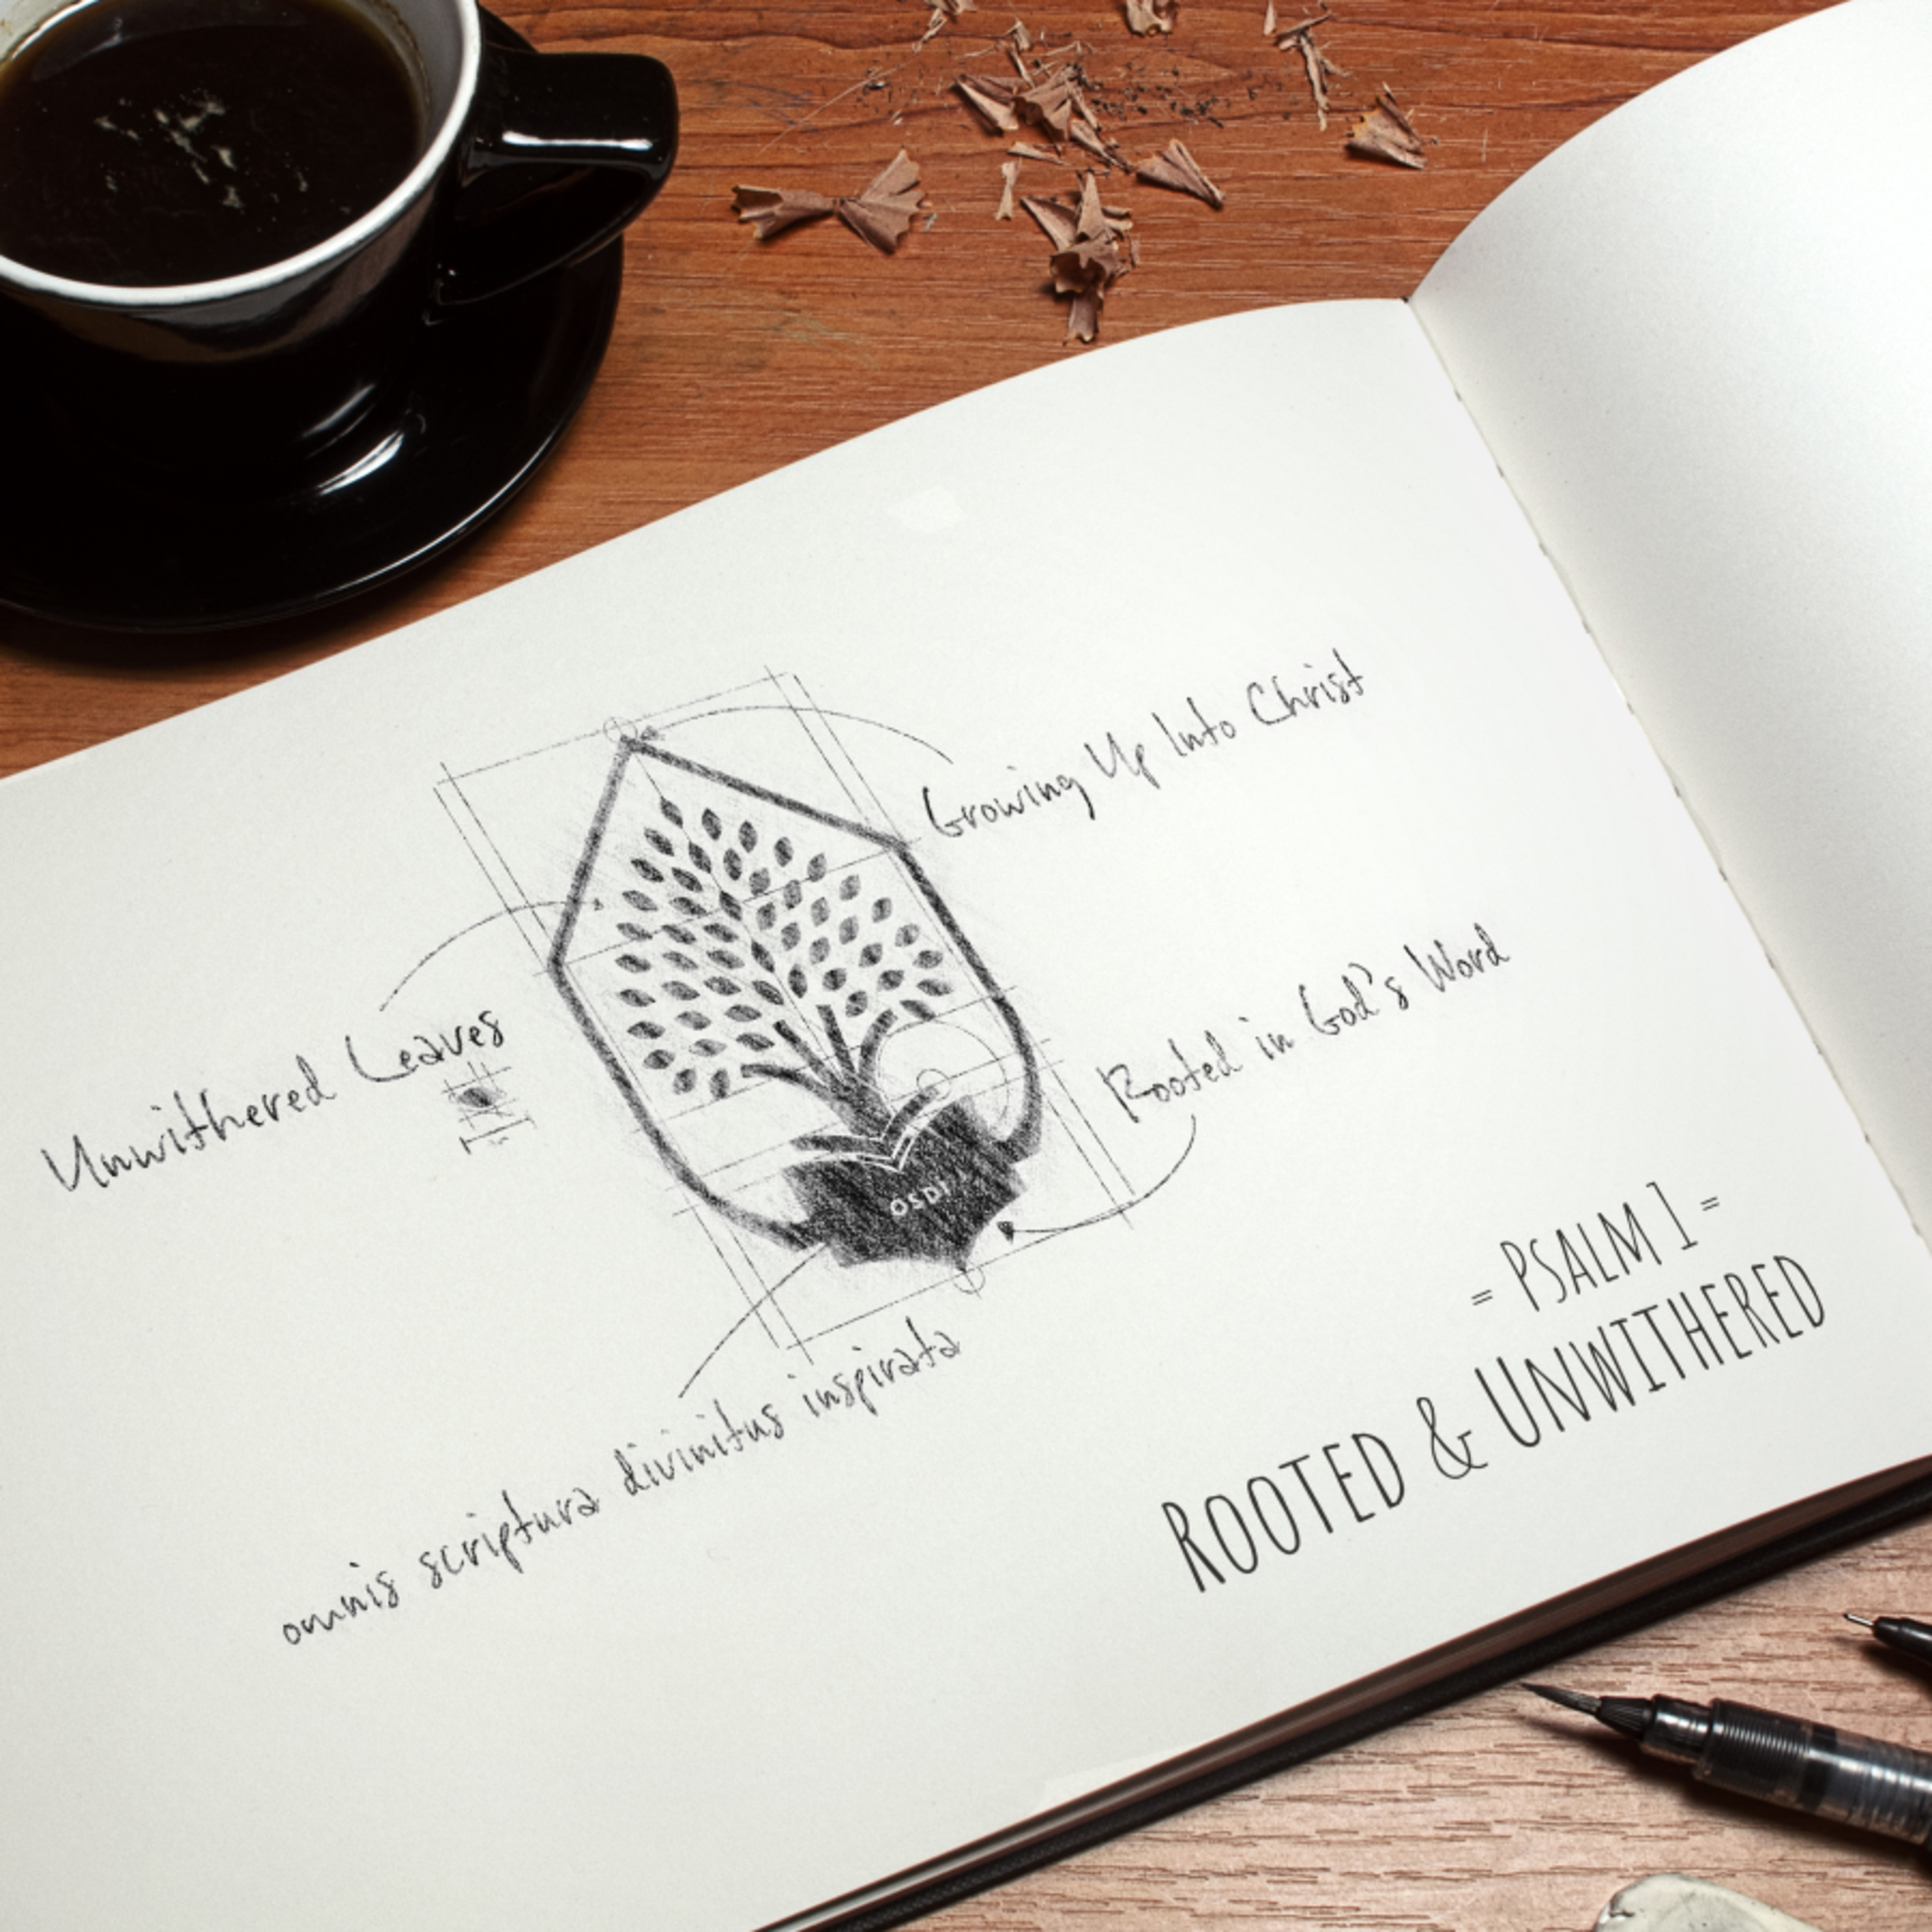 Growing Up Into Christ
Unwithered Leaves
Rooted in God's Word
OSDI
omnis scriptura divinitus inspirata
= PSALM 1 =
ROOTED & UNWITHERED